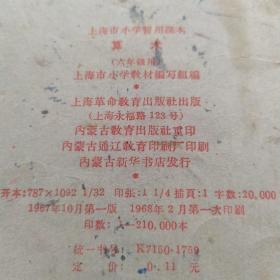 上海市小学暂用课本
算术
(六年级用)
上海市小学教材编写组编
上海革命教育出版社出版
(上海永福路123号)
内蒙古教育出版社重印
内蒙古通辽教育印刷厂印刷
内蒙古新华书店发行
开本:787×1092 1/32 印张:1 1/4 插页:1 字数:20,000
1967年10月第一版 1968年2月第一次印刷
印数:1—210,000本
统一书号: K7150·1759
定价: 0.11元